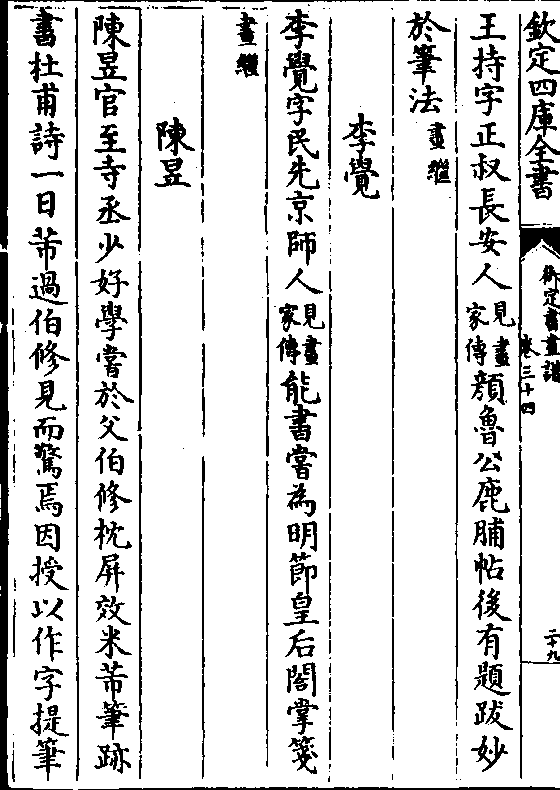 欽定四庫全書
御定書畫譜
卷三十四
二十九
王持字正叔長安人見畫家傳顏魯公鹿脯帖後有題跋妙
於筆法畫繼
李覺
李覺字民先京師人見畫家傳能書嘗為明節皇后閤掌箋
畫繼
陳昱
陳昱官至寺丞少好學嘗於父伯修枕屏效米芾筆跡
書杜甫詩一日芾過伯修見而驚焉因授以作字提筆